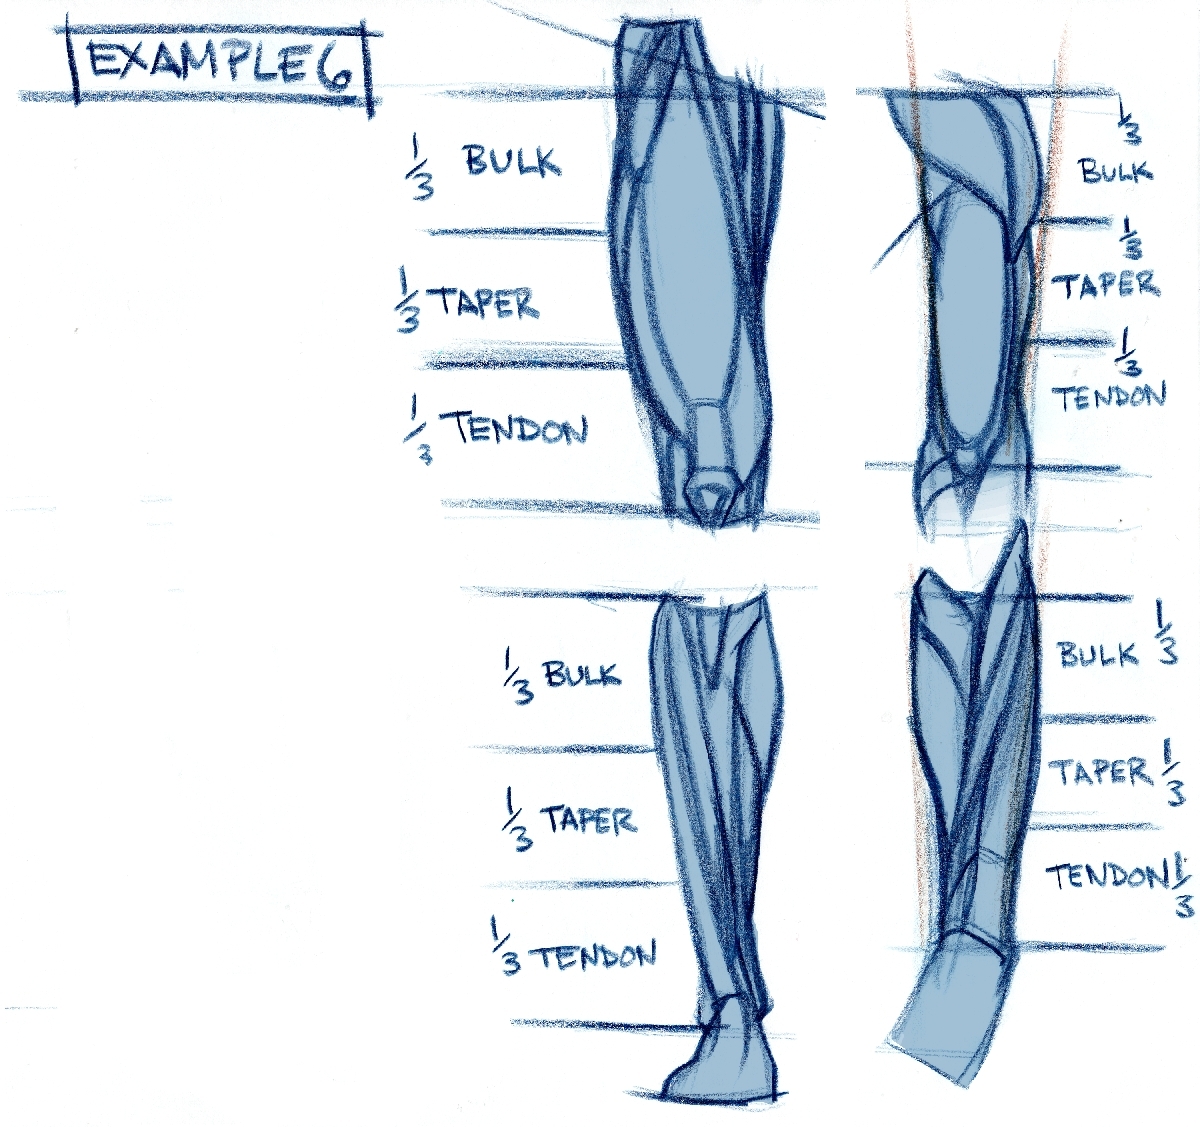 EXAMPLE 6
1/3 BULK
1/3 TAPER
1/3 TENDON
1/3
BULK
1/3
TAPER
1/3
TENDON
1/3 BULK
1/3 TAPER
1/3 TENDON
BULK 1/3
TAPER 1/3
TENDON 1/3